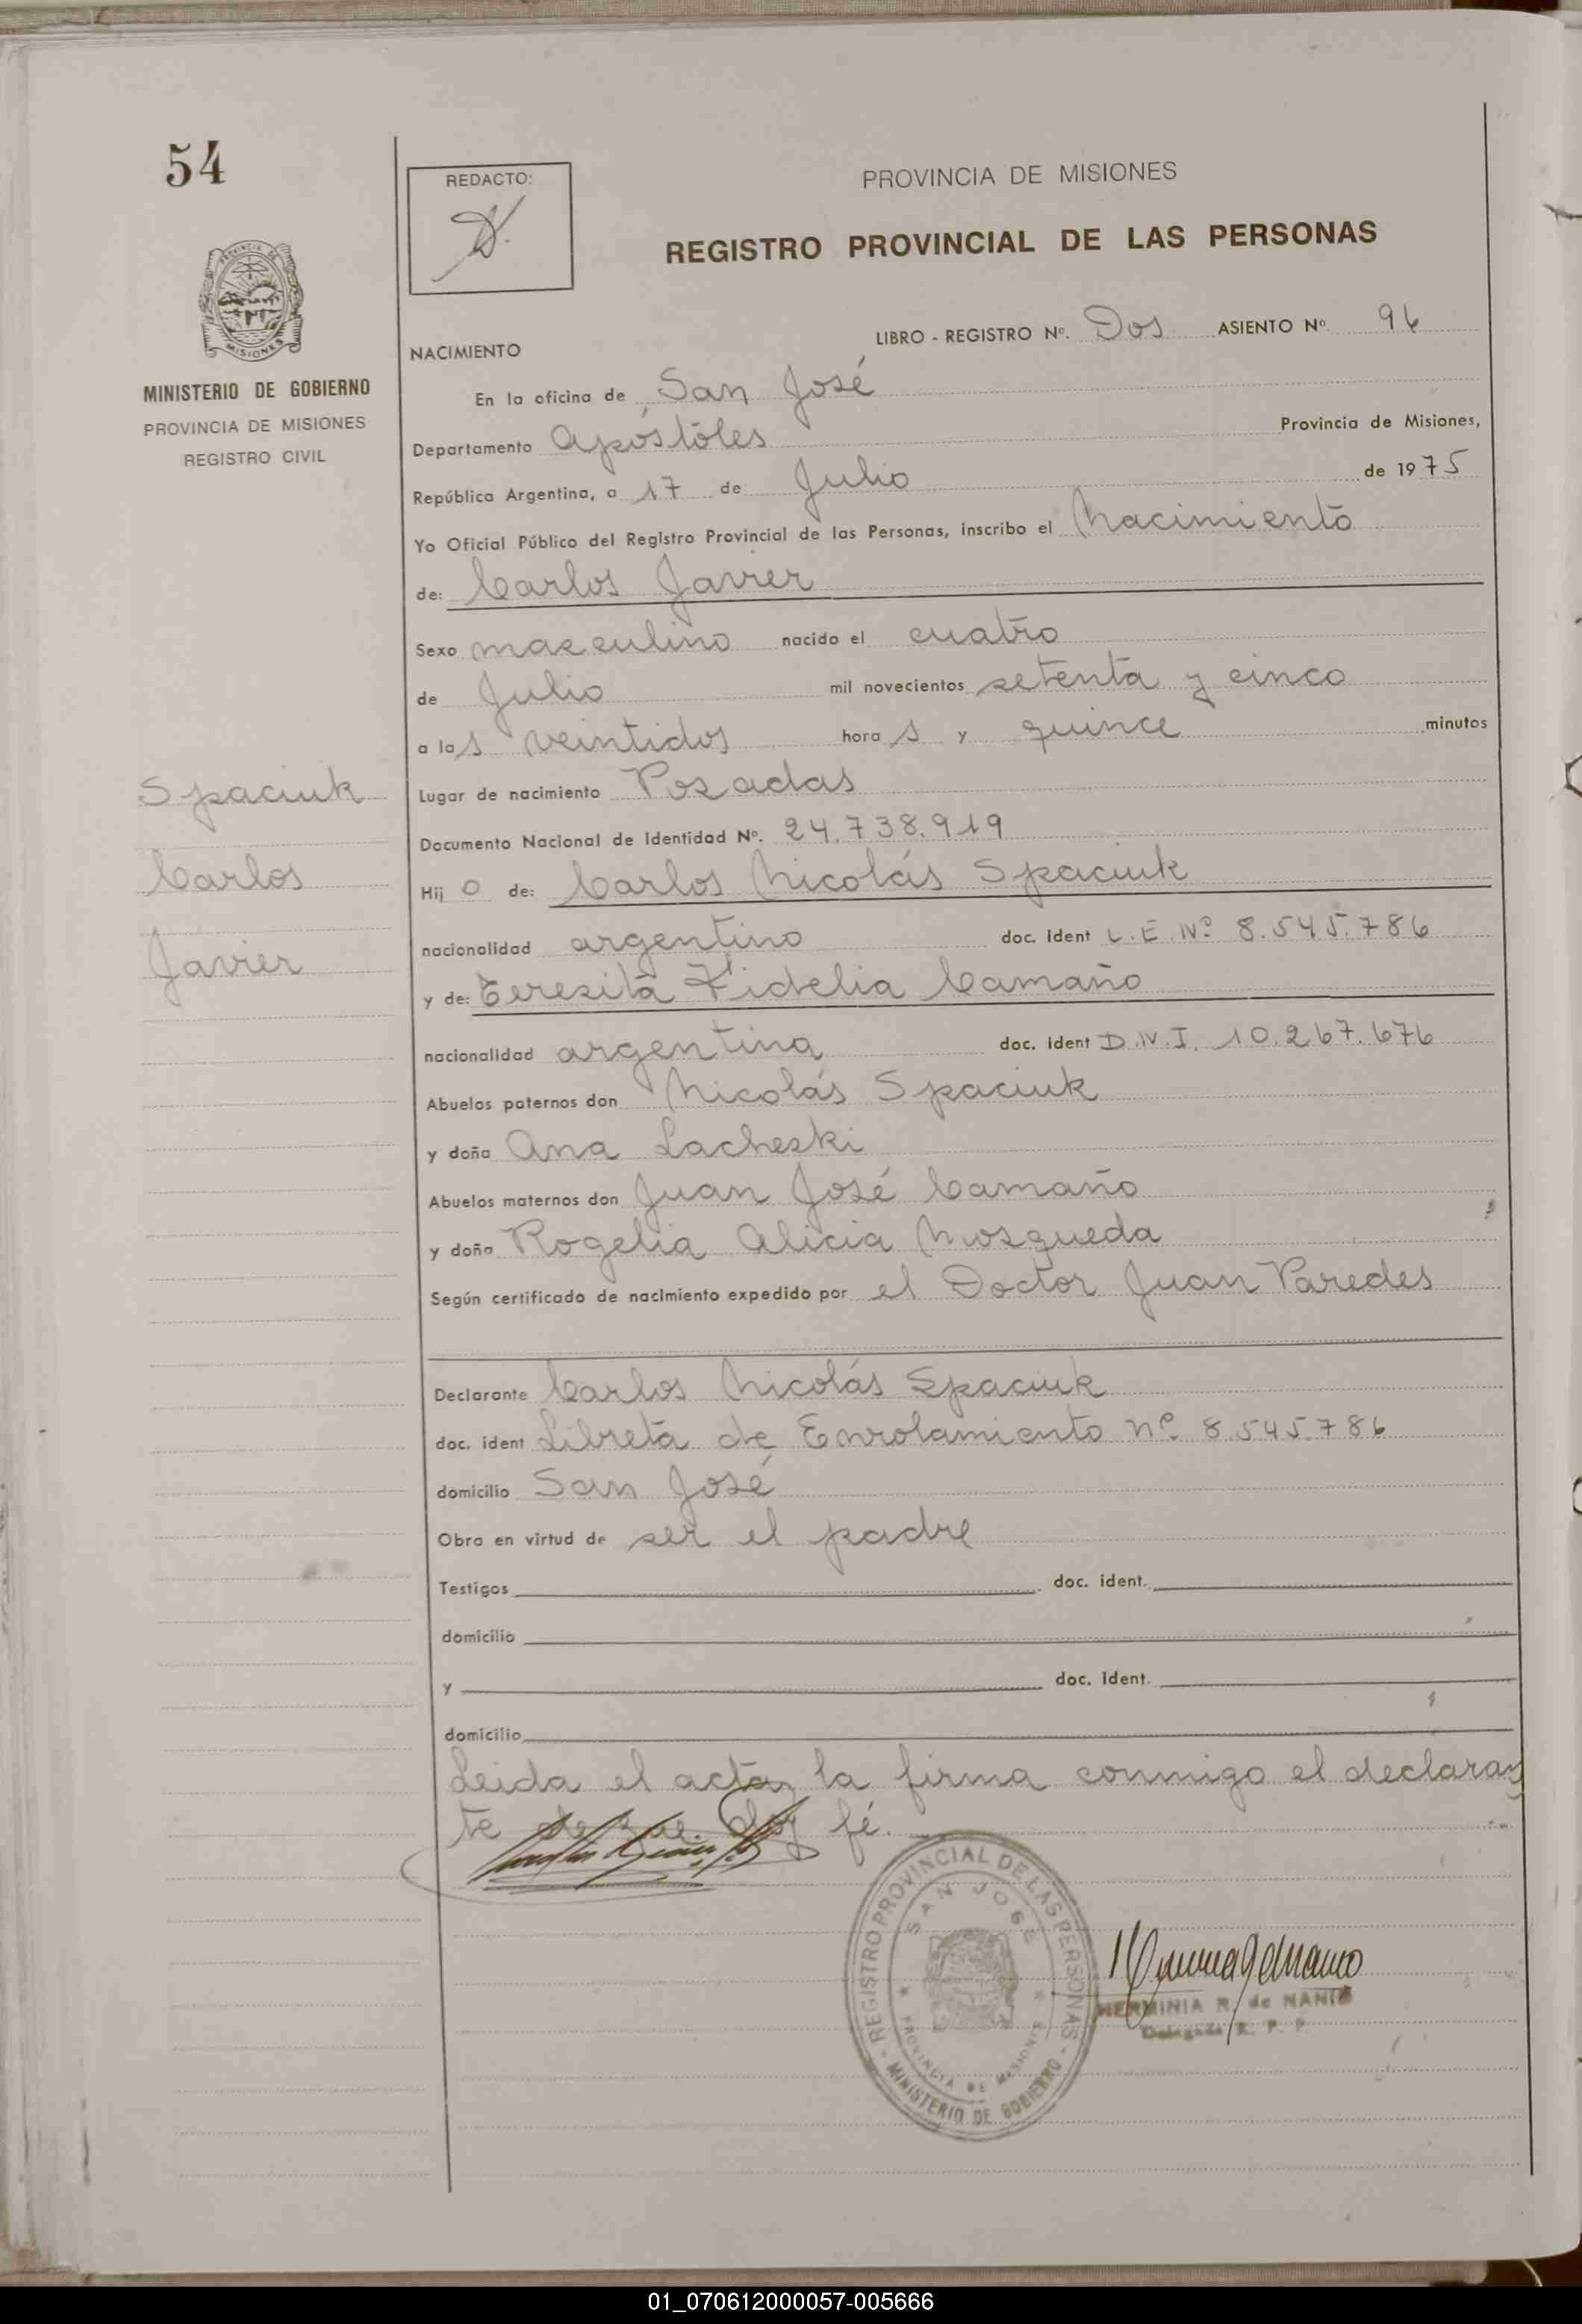 54
REDACTO:
PROVINCIA DE MISIONES
REGISTRO PROVINCIAL DE LAS PERSONAS
MISIONES
MINISTERIO DE GOBIERNO
PROVINCIA DE MISIONES
REGISTRO CIVIL
LIBRO - REGISTRO Nº. Dos ASIENTO Nº 96
NACIMIENTO
En la oficina de San José
Departamento Apóstoles Provincia de Misiones,
República Argentina, a 17 de Julio de 1975
Yo Oficial Público del Registro Provincial de las Personas, inscribo el Nacimiento
de: Carlos Javier
Sexo masculino nacido el cuatro
de Julio mil novecientos setenta y cinco
a las veintidos horas y quince minutos
Lugar de nacimiento Posadas
Documento Nacional de Identidad Nº. 24.738.919
Hijo de: Carlos Nicolás Spaciuk
nacionalidad argentino doc. ident L.E. Nº 8.545.786
y de: Teresita Fidelia Camaño
nacionalidad argentina doc. ident D.N.I. 10.267.676
Abuelos paternos don Nicolás Spaciuk
y doña Ana Lacheski
Abuelos maternos don Juan José Camaño
y doña Rogelia Alicia Mosqueda
Según certificado de nacimiento expedido por el Doctor Juan Paredes
Spaciuk
Carlos
Javier
Declarante Carlos Nicolás Spaciuk
doc. ident Libreta de Enrolamiento Nº 8.545.786
domicilio San José
Obra en virtud de ser el padre
Testigos doc. ident.
domicilio
y doc. ident.
domicilio
Leida el acta, la firma conmigo el declaran
te de que doy fé.
REGISTRO PROVINCIAL DE LAS PERSONAS - MINISTERIO DE GOBIERNO -
SAN JOSE
PROVINCIA DE MISIONES
HERMINIA R. de NANIO
Delegada R. P. P.
01_070612000057-005666